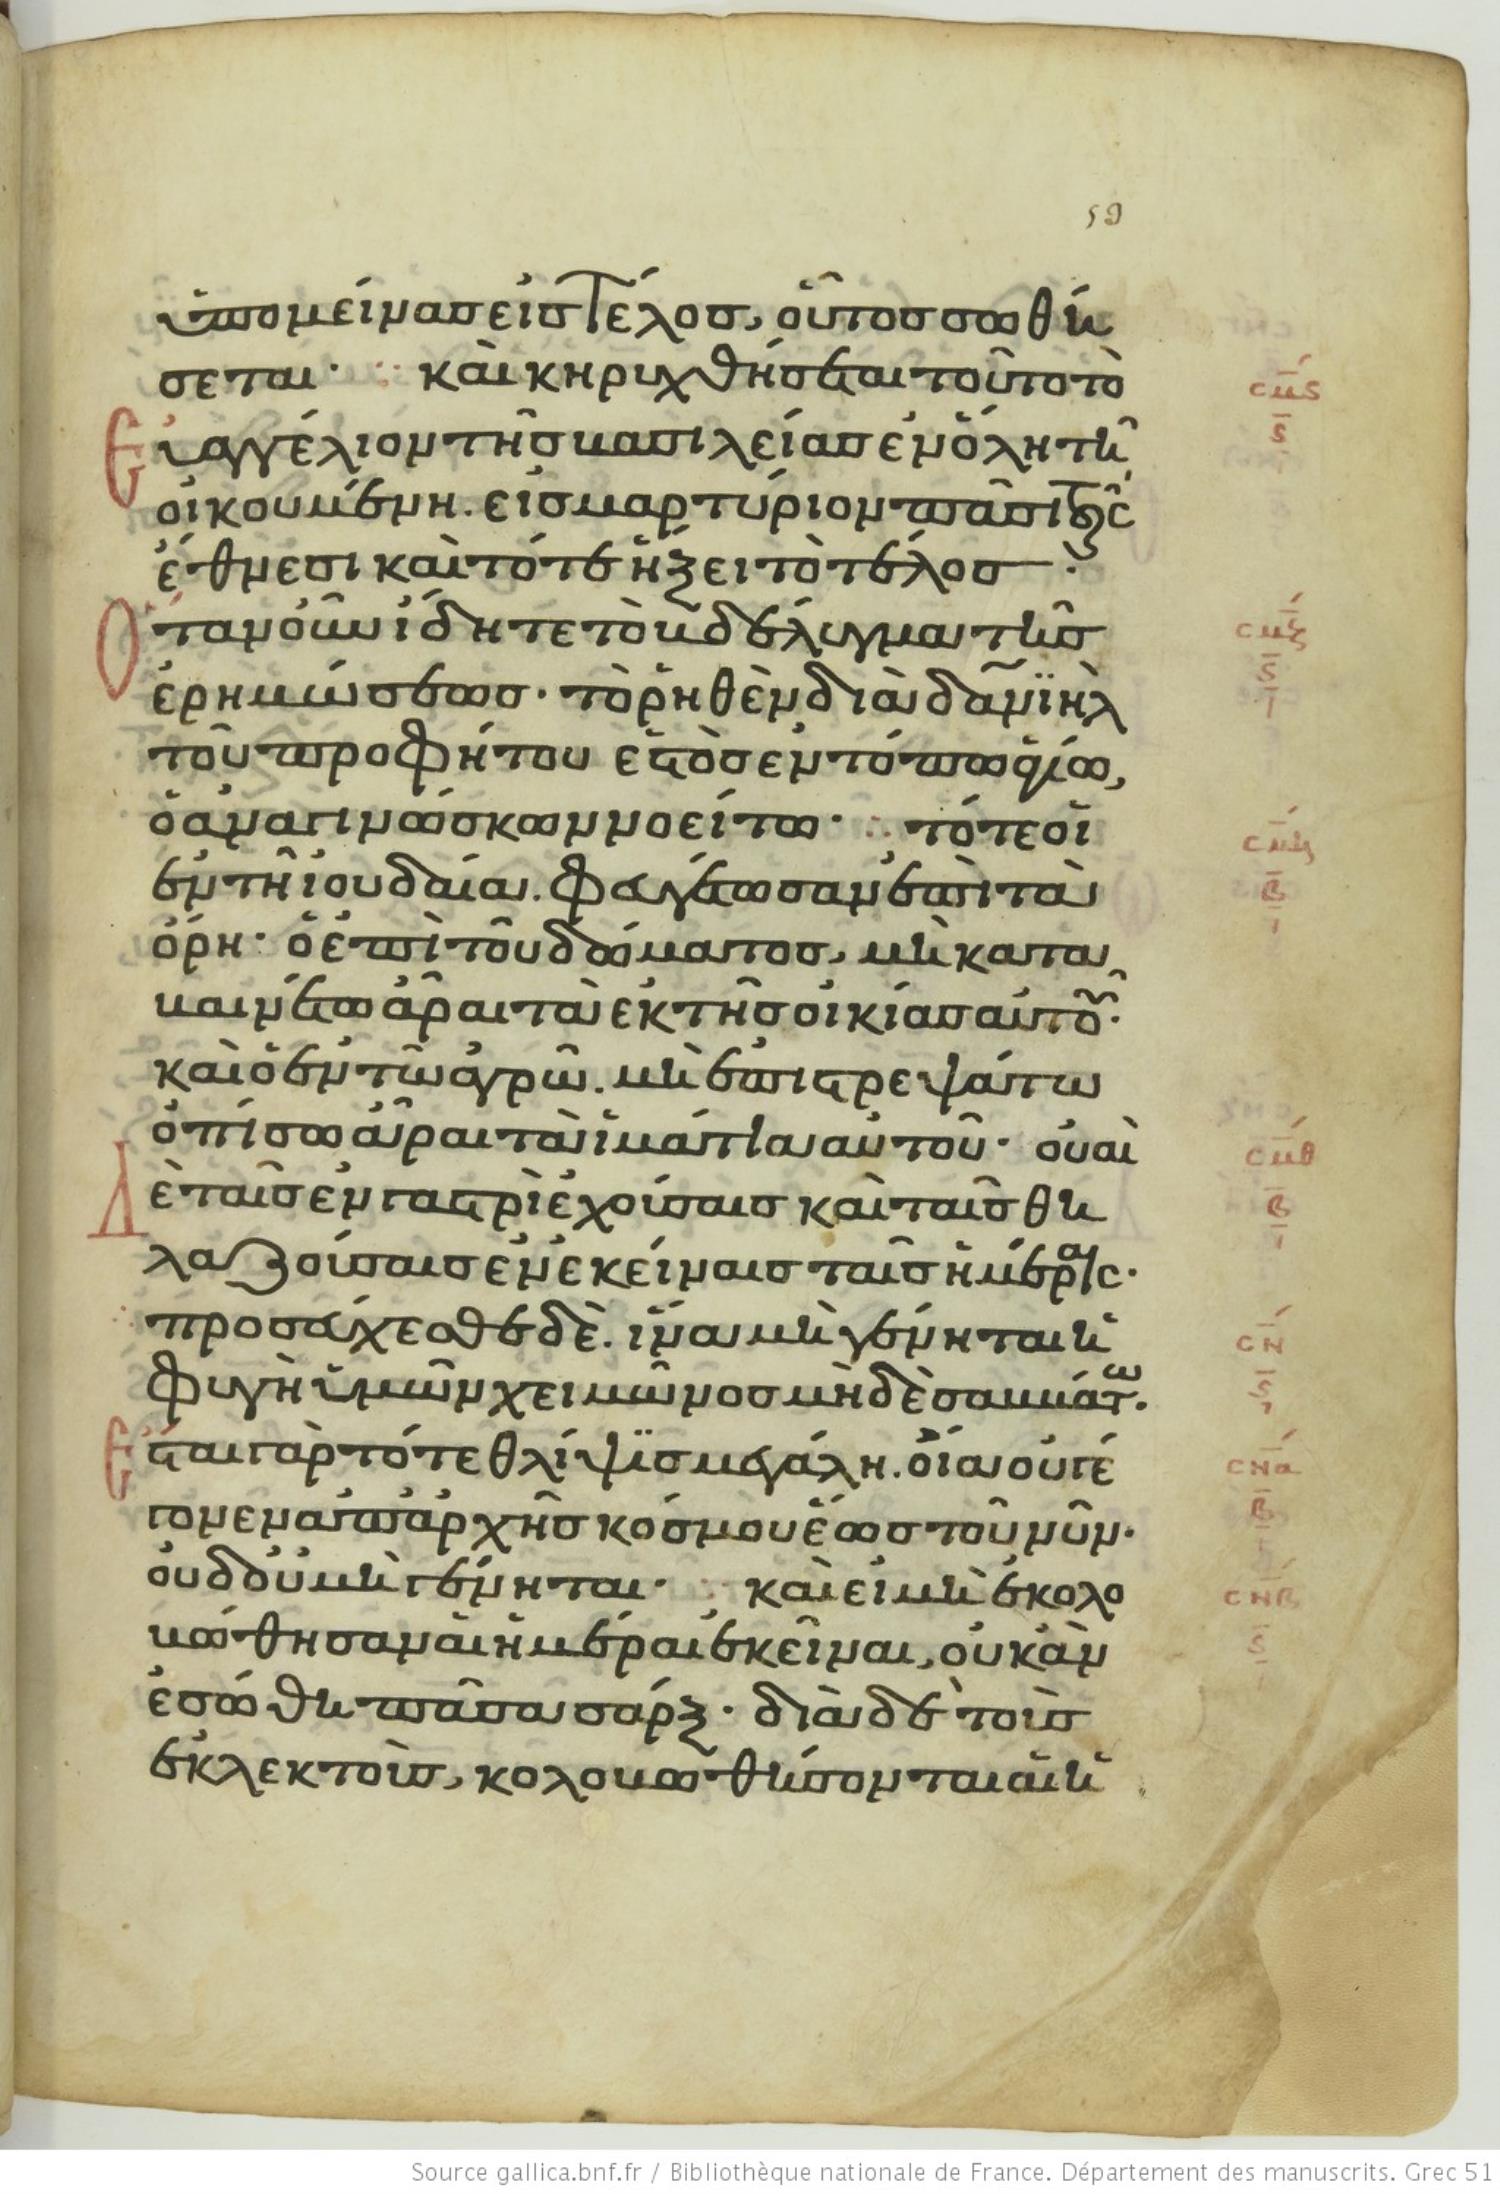 59
ὑπομείνας εἰς τέλος, οὗτος σωθή
σεται· καὶ κηρυχθήσεται τοῦτο τὸ
Εὐαγγέλιον τῆς βασιλείας ἐν ὅλη τῆ
οἰκουμένη. εἰς μαρτύριον πᾶσι τοῖς
ἔθνεσι καὶ τότε ἥξει τὸ τέλος
Ὅταν οὖν ἴδητε τὸ βδέλυγμα τῆς
ἐρημώσεως· τὸ ῥηθὲν διὰ δανϊὴλ
τοῦ προφήτου ἑστὸς ἐν τόπω ἁγίω,
ὁ ἀναγινώσκων νοείτω· τότε οἱ
ἐν τῆ ἰουδαία. φευγέτωσαν ἐπὶ τὰ
ὄρη· ὁ ἐπὶ τοῦ δώματος, μὴ κατα
βαινέτω ἆραι τὰ ἐκ τῆς οἰκίας αὐτοῦ·
καὶ ὁ ἐν τῶ ἀγρῶ. μὴ ἐπιστρεψάτω
ὀπίσω ἆραι τὰ ἱμάτια αὐτοῦ· οὐαὶ
Δὲ ταῖς ἐν γαστρὶ ἐχούσαις καὶ ταῖς θη
λαζούσαις ἐν ἐκείναις ταῖς ἡμέραις·
προσεύχεσθε δὲ. ἵνα μὴ γένηται ἡ
φυγὴ ὑμῶν χειμῶνος μὴδὲ σαββάτω.
Ἔσται γὰρ τότε θλίψϊς μεγάλη. οἵα οὐ γέ
γονεν ἀπ' ἀρχῆς κόσμου ἕως τοῦ νῦν·
οὐδ' οὐ μὴ γένηται· καὶ εἰ μὴ ἐκολο
βώθησαν αἱ ἡμέραι ἐκεῖναι, οὐκ ἂν
ἐσώθη πᾶσα σάρξ· διὰ δὲ τοὺς
ἐκλεκτοὺς, κολοβωθήσονται αἱ ἡ
σμς
ς
σμζ
ς
σμη
β
σμθ
β
σν
ς
σνα
β
σνβ
ς
Source gallica.bnf.fr / Bibliothèque nationale de France. Département des manuscrits. Grec 51